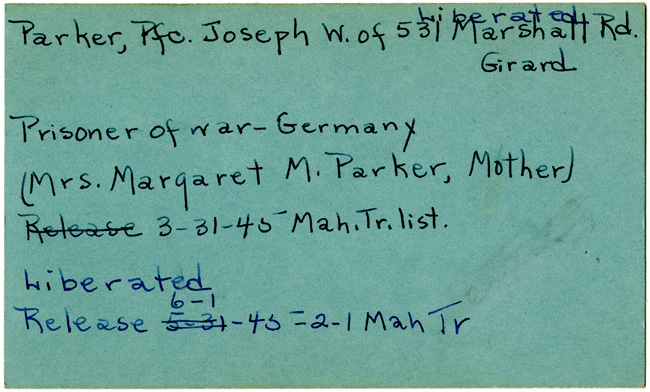 Liberated
Parker, Pfc. Joseph W. of 531 Marshall Rd.
Girard
Prisoner of war - Germany
(Mrs. Margaret M. Parker, Mother)
Release 3-31-45 Mah. Tr. list.
Liberated
6-1
Release 5-31-45 = 2-1 Mah Tr